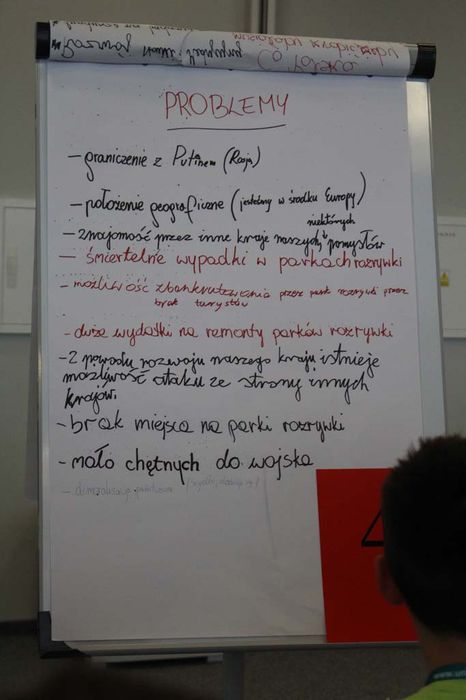 PROBLEMY
- graniczenie z Putinem (Rosja)
- położenie geograficzne (jesteśmy w środku Europy)
niektórych
- znajomość przez inne kraje naszych pomysłów
- śmiertelne wypadki w parkach rozrywki
- możliwość zbankrutowania przez park rozrywki przez
brak turystów
- duże wydatki na remonty parków rozrywki
- z powodu rozwoju naszego kraju istnieje
możliwość ataku ze strony innych
krajów.
- brak miejsca na parki rozrywki
- mało chętnych do wojska